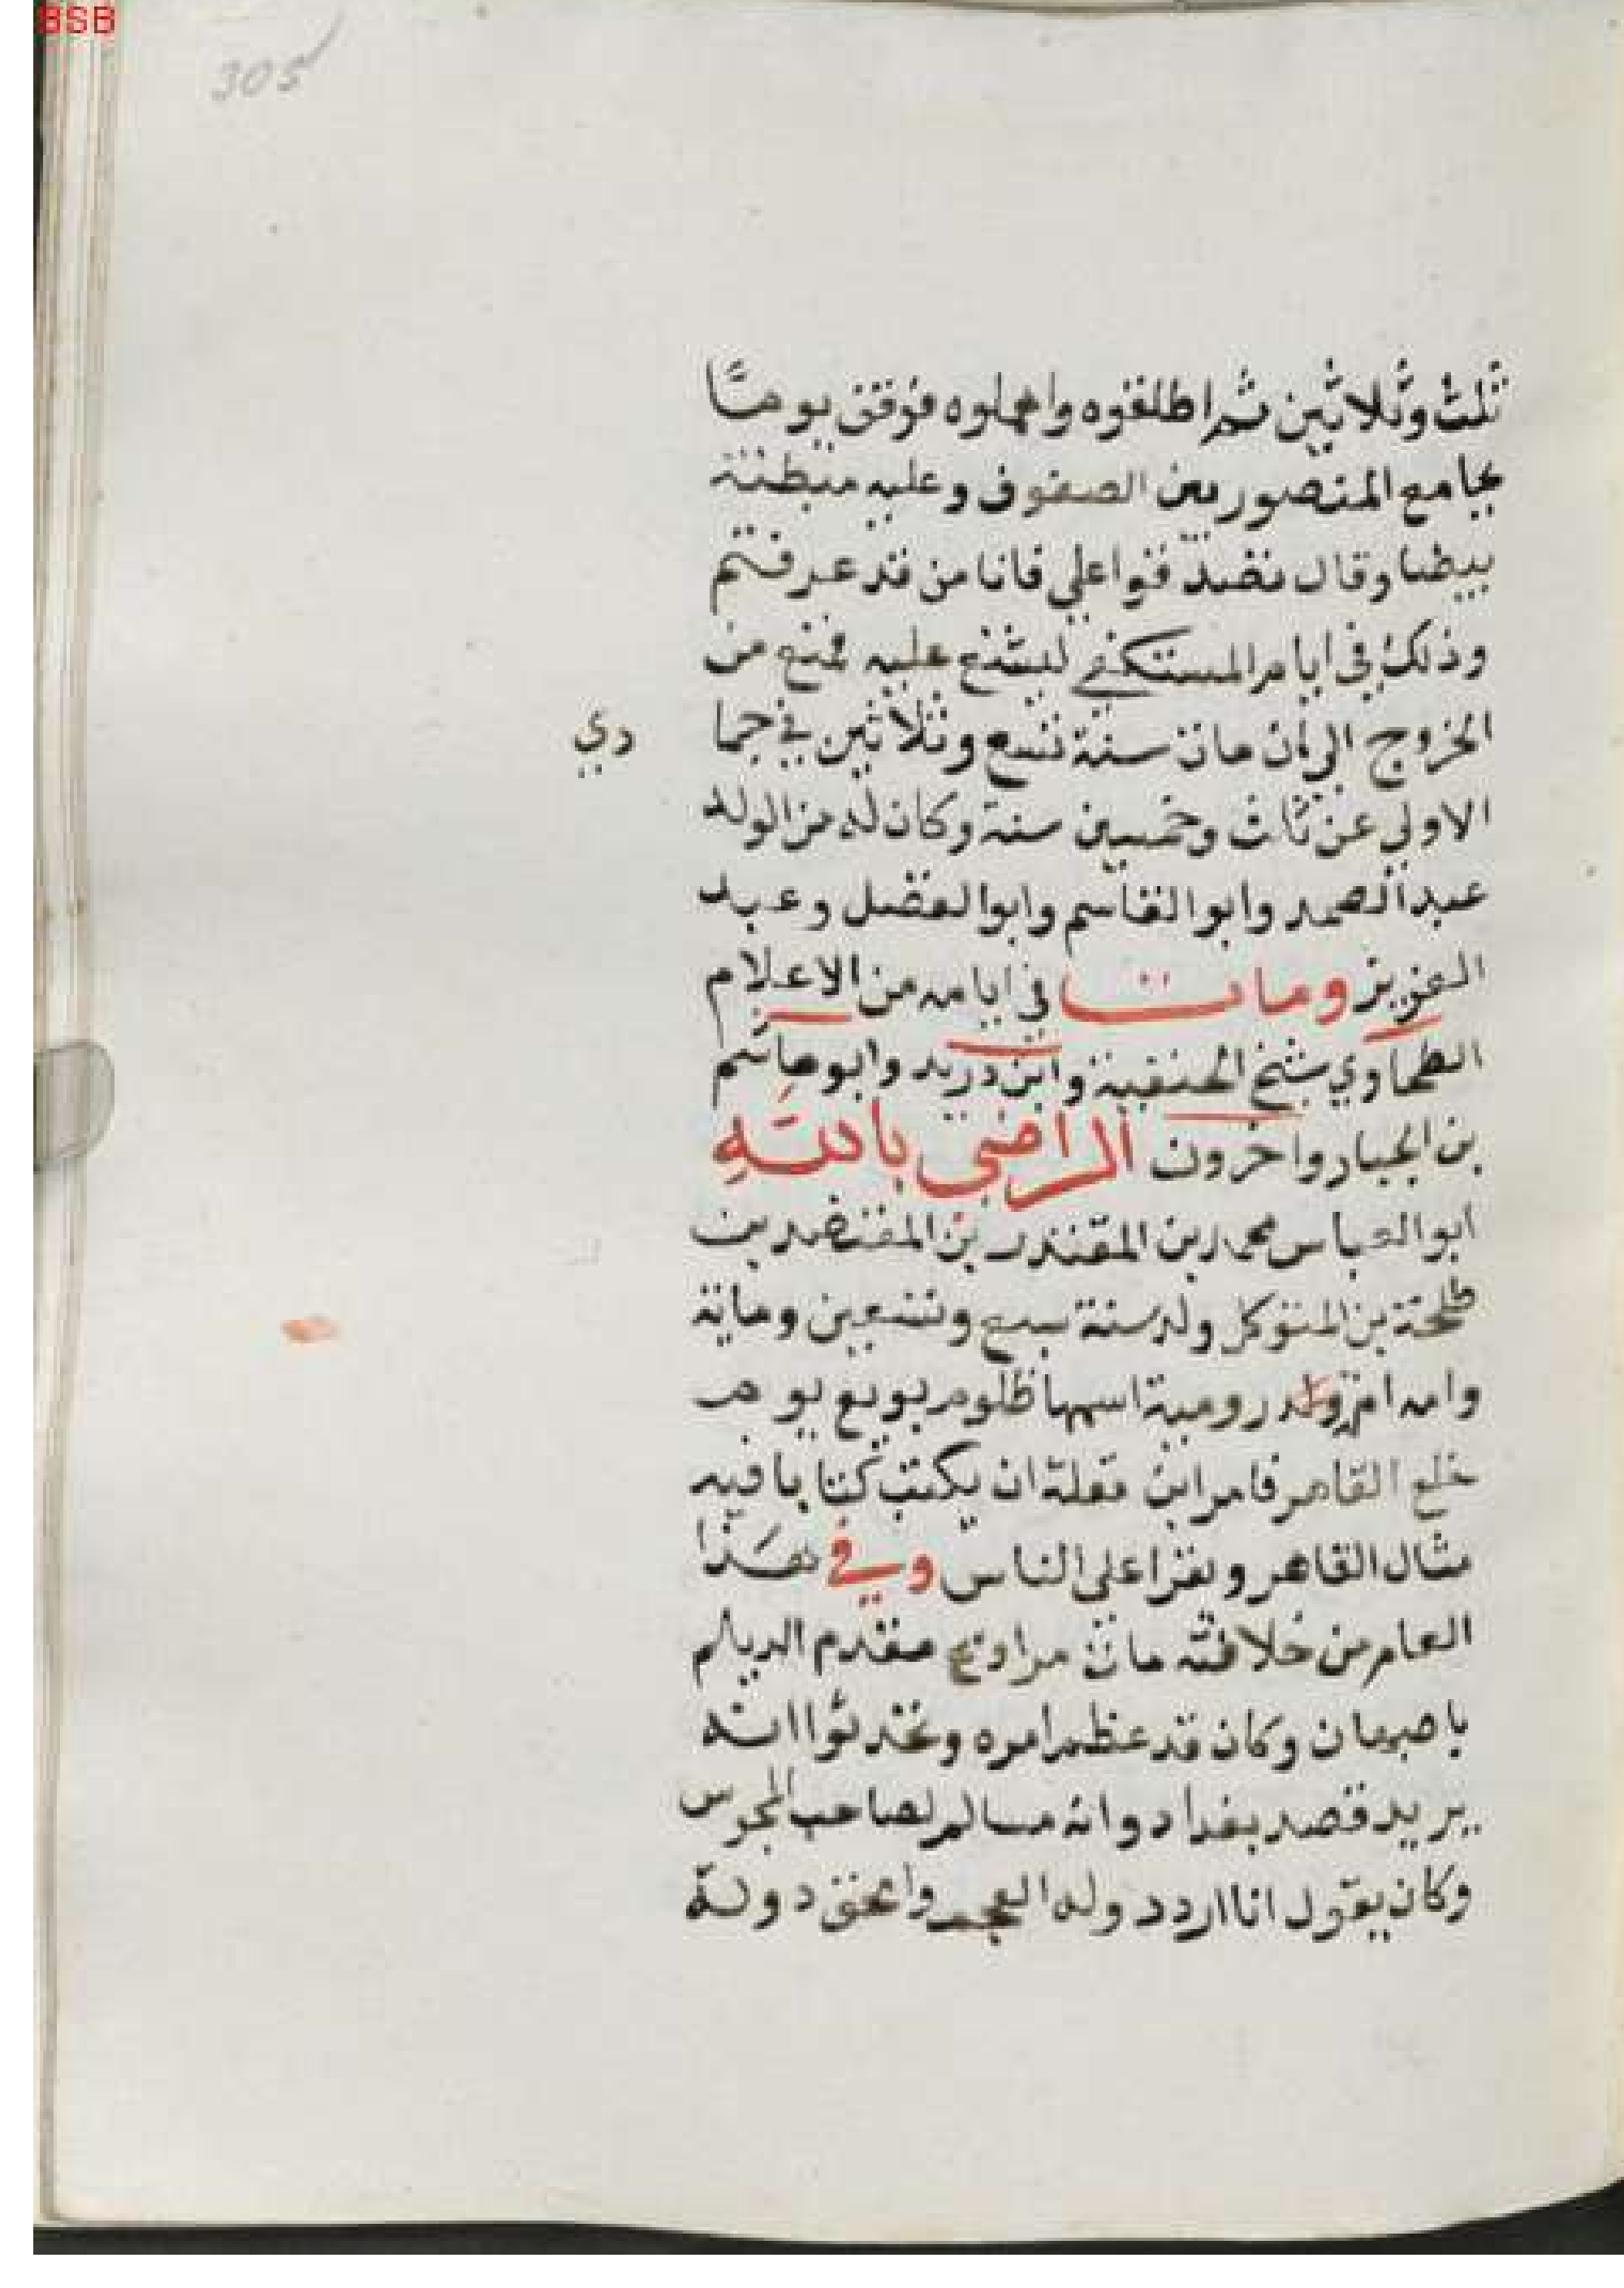 BSB
305
ثلث وثلاثين ثم اطلقوه واهملوه فوقف يوما
بجامع المنصور بين الصفوف وعليه مبطنة
بيضا وقال تصدقوا علي فانا من قد عرفتم
وذلك في ايام المستكفي ليشنع عليه فمنع من
الخروج الي ان مات سنة تسع وثلاثين في جما دي
الاولي عن ثلث وخمسين سنة وكان له من الولد
عبد الصمد وابو القاسم وابو الفضل وعبد
العزيز ومات في ايامه من الاعلام
الطحاوي شيخ الحنفية وابن دريد وابو هاشم
بن الجبار واخرون الراضي بالله
ابو العباس محمد بن المقتدر بن المعتضد بن
طلحة بن المتوكل ولد سنة سبع وتسعين وماية
وامه ام ولد رومية اسمها ظلوم بويع يوم
خلع القاهر فامر ابن مقلة ان يكتب كتابا فيه
مثال القاهر ويقرا علي الناس وفي هذا
العام من خلافته مات مرداويج مقدم الديلم
باصبهان وكان قد عظم امره وتحدثوا انه
يريد قصد بغداد وانه مسالم لصاحب المجوس
وكان يقول انا ارد دولة العجم وامحق دولة